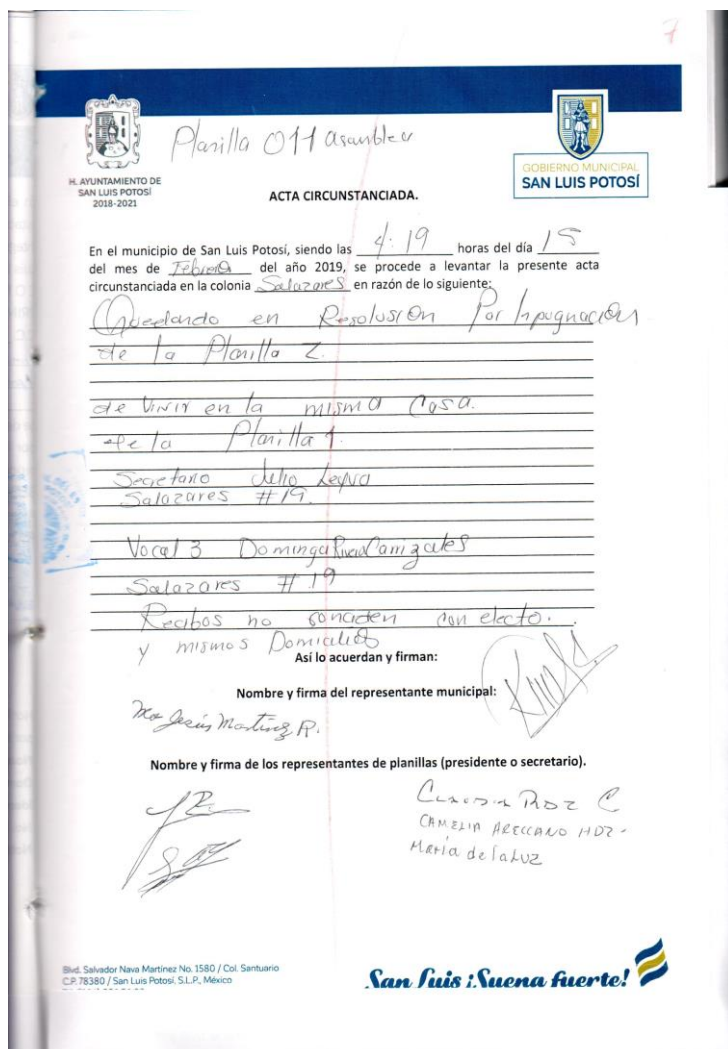 7
Planilla 011 asamblea
H. AYUNTAMIENTO DE
SAN LUIS POTOSÍ
2018-2021
GOBIERNO MUNICIPAL
SAN LUIS POTOSÍ
ACTA CIRCUNSTANCIADA.
En el municipio de San Luis Potosí, siendo las 4:19 horas del día 15
del mes de Febrero del año 2019, se procede a levantar la presente acta
circunstanciada en la colonia Salazares en razón de lo siguiente:
Quedando en Resolusión Por Inpugnación
de la Planilla 2.
de vivir en la misma Casa.
de la Planilla 1.
Secretario Julio Leyva
Salazares #19.
Vocal 3 Dominga Rivera Carrizales
Salazares # 19
Recibos no conciden con electo.
y mismos Domicilios
Así lo acuerdan y firman:
Nombre y firma del representante municipal:
Ma Jesús Martínez R.
Nombre y firma de los representantes de planillas (presidente o secretario).
Claudia C
CAMELIA ARELLANO HDZ-
María de la Luz
Blvd. Salvador Nava Martínez No. 1580 / Col. Santuario
C.P. 78380 / San Luis Potosí, S.L.P., México
San Luis ¡Suena fuerte!